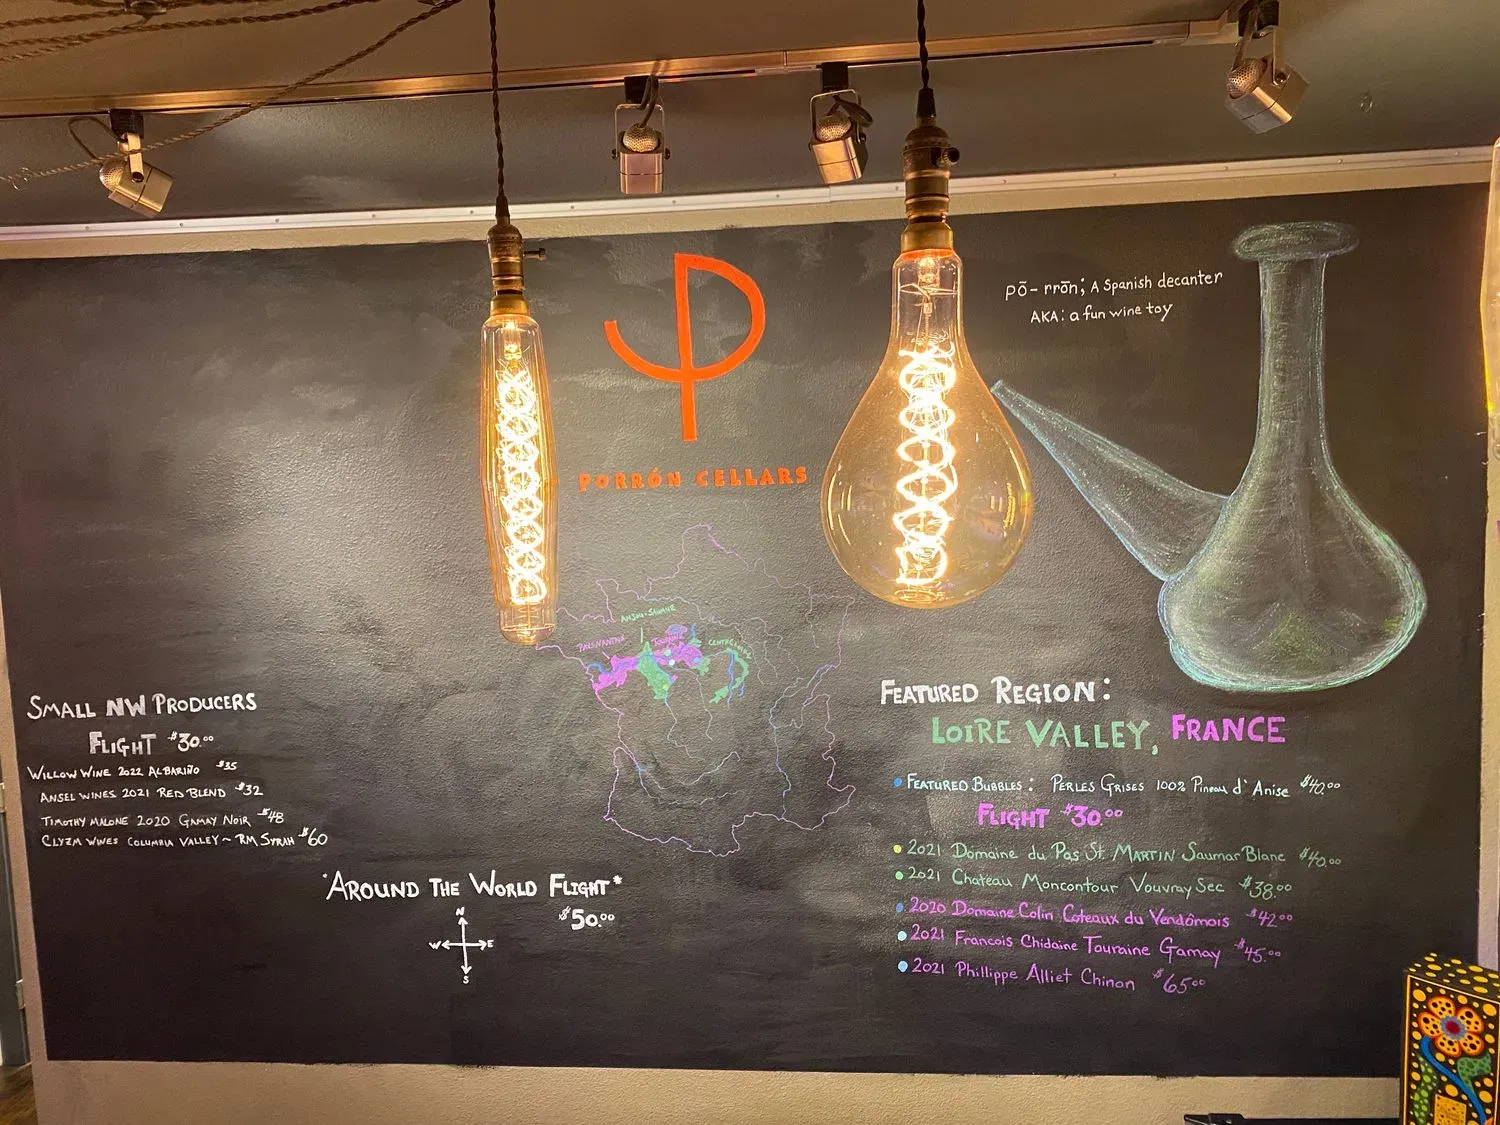 PORRÓN CELLARS
pō-rrōn; A Spanish decanter
AKA: a fun wine toy
ANJOU-SAUMUR
PAYS NANTAIS
TOURAINE
SMALL NW PRODUCERS
FLIGHT $30.00
WILLOW WINE 2022 ALBARIÑO $35
ANSEL WINES 2021 RED BLEND $32
TIMOTHY MALONE 2020 GAMAY NOIR $48
CLYZM WINES COLUMBIA VALLEY ~ RM SYRAH $60
*AROUND THE WORLD FLIGHT*
$50.00
N
W E
S
FEATURED REGION:
LOIRE VALLEY, FRANCE
FEATURED BUBBLES: PERLES GRISES 100% Pineau d'Anise $40.00
FLIGHT $30.00
2021 Domaine du Pas St. MARTIN Saumur Blanc $40.00
2021 Chateau Moncontour Vouvray Sec $38.00
2020 Domaine Colin Coteaux du Vendômois $42.00
2021 Francois Chidaine Touraine Gamay $45.00
2021 Phillippe Alliet Chinon $65.00